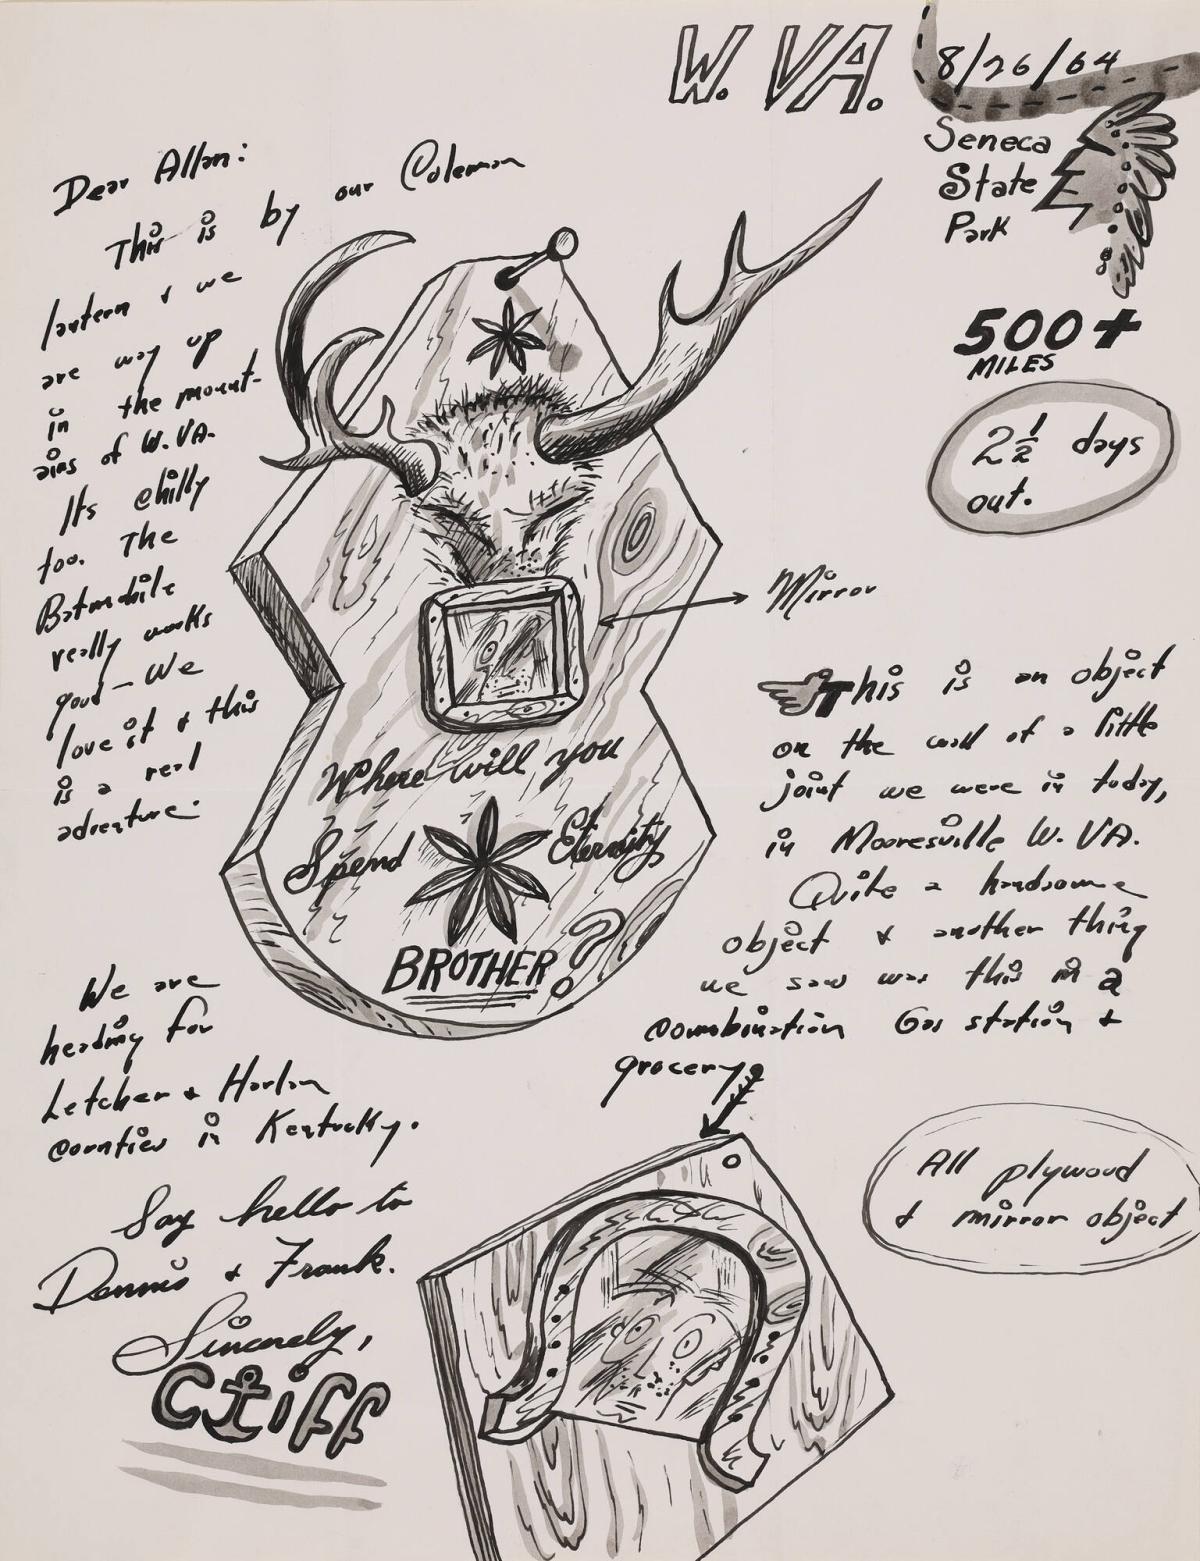 W. VA.
8/26/64
Seneca
State
Park
500+
MILES
2½ days
out.
Dear Allan:
This is by our Coleman
lantern & we
are way up
in the mount-
ains of W. VA.
Its chilly
too. The
Batmobile
really works
good — We
love it & this
is a real
adventure.
Mirror
Where will you
Spend Eternity
BROTHER?
This is an object
on the wall of a little
joint we were in today,
in Mooresville W. VA.
Quite a handsome
object & another thing
we saw was this in a
combination Gas station &
grocery.
We are
heading for
Letcher & Harlan
counties in Kentucky.
Say hello to
Dennis & Frank.
Sincerely,
Cliff
All plywood
& mirror object